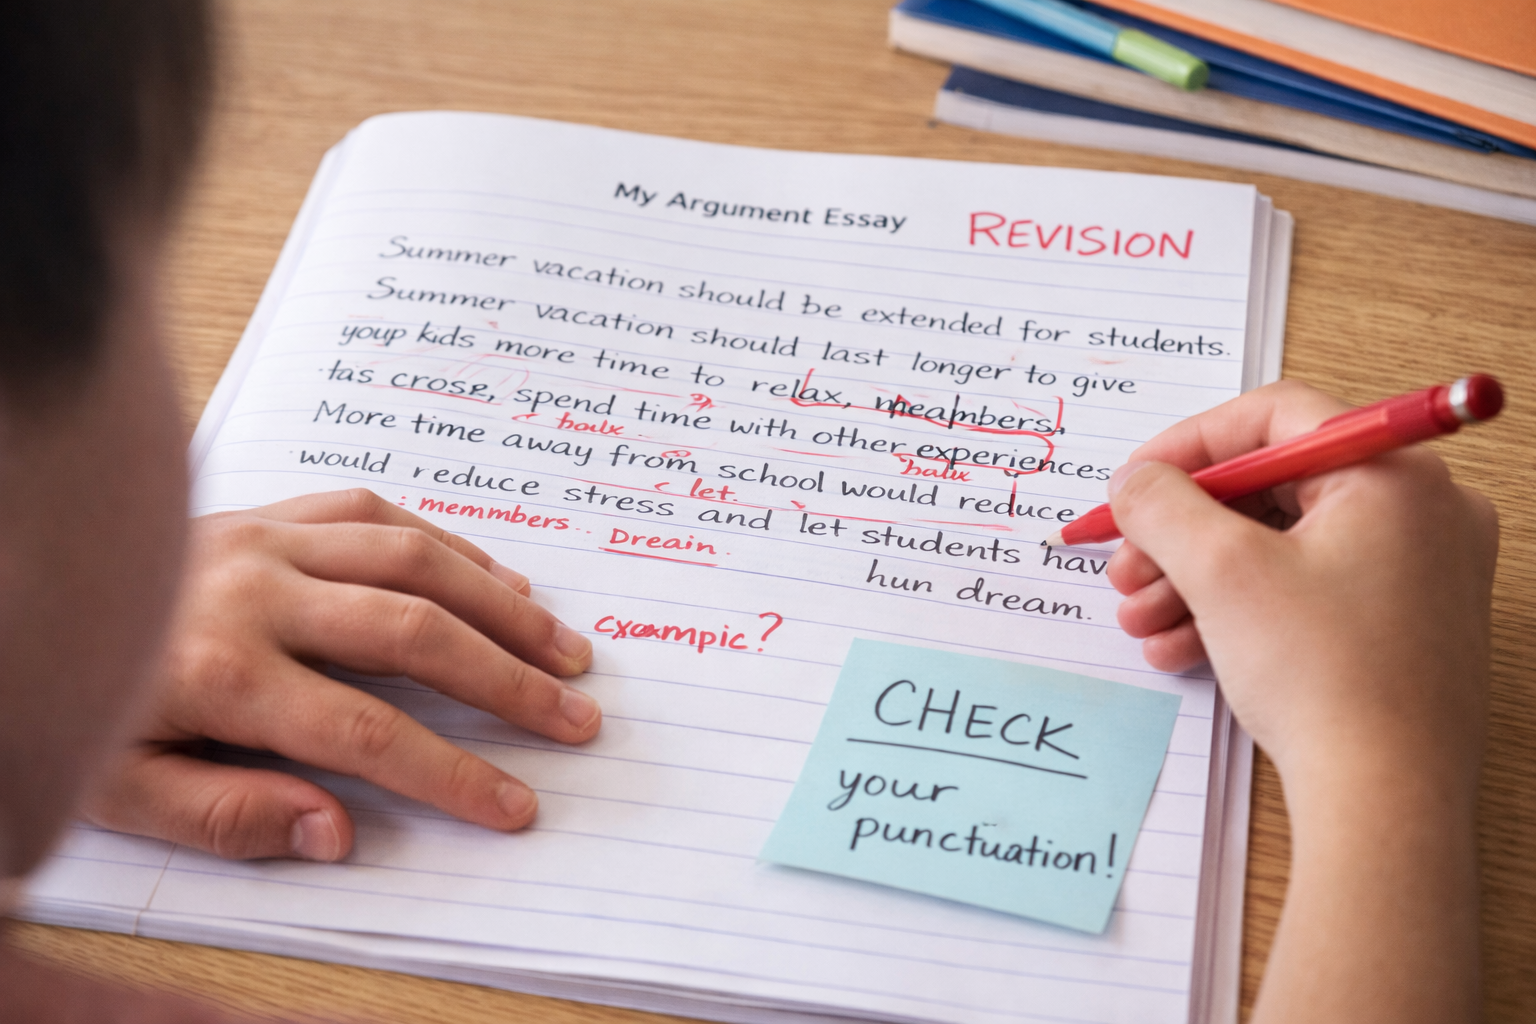 My Argument Essay REVISION
Summer vacation should be extended for students.
Summer vacation should last longer to give
youp kids more time to relax,
tas crose, spend time with other experiences
balix balix
More time away from school would reduce
let.
would reduce stress and let students hav
: memmbers.. Dreain.
hun dream.
cxoampic?
CHECK
your
punctuation!